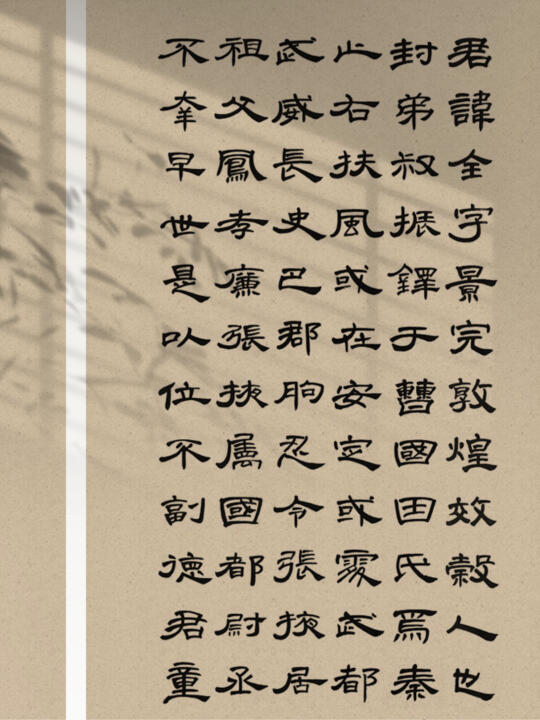 君諱全字景完敦煌效穀人也
封弟叔振鐸于曹國因氏焉秦
止右扶風或在安定或處武都
武威長史巴郡朐忍令張掖居
祖父鳳孝廉張掖屬國都尉丞
不幸早世是以位不副德君童